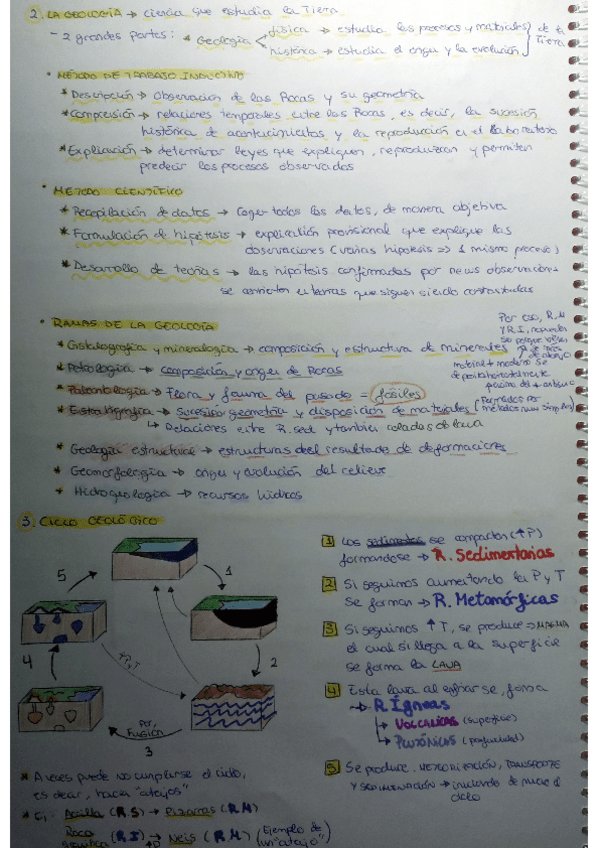 2. LA GEOLOGÍA → ciencia que estudia la Tierra
- 2 grandes partes: * Geología física → estudia los procesos y materiales de la Tierra
histórica → estudia el origen y la evolución
• MÉTODO DE TRABAJO INDUCTIVO
* Descripción → Observación de las Rocas y su geometría
* Comprensión → relaciones temporales entre las Rocas, es decir, la sucesión
histórica de acontecimientos y la reproducción en el laboratorio
* Explicación → determinar leyes que expliquen, reproduzcan y permiten
predecir los procesos observados
• MÉTODO CIENTÍFICO
* Recopilación de datos → Coger todos los datos, de manera objetiva
* Formulación de hipótesis → explicación provisional que explique las
observaciones (varias hipótesis => 1 mismo proceso)
* Desarrollo de teorías → las hipótesis confirmadas por nuevas observaciones
se convierten en teorías que siguen siendo contrastadas
• RAMAS DE LA GEOLOGÍA
* Cristalografía y mineralogía → composición y estructura de minerales
* Petrología → composición y origen de Rocas
* Paleontología → Flora y fauna del pasado = fósiles
* Estratigrafía → Sucesión geometría y disposición de materiales
↳ Relaciones entre R. sed y también coladas de lava
* Geología estructural → estructuras del resultado de deformaciones
* Geomorfología → origen y evolución del relieve
* Hidrogeología → recursos hídricos
Por eso, R.M
y R.I,
material + moderno se
3. CICLO GEOLÓGICO
5
1
4
2
+P,T
Por Fusión
3
1 Los sedimentos se compactan (↑P)
formándose → R. Sedimentarias
2 Si seguimos aumentando la P y T
se forman → R. Metamórficas
3 Si seguimos ↑T, se produce → MAGMA
el cual si llega a la superficie
se forma la LAVA
4 Esta lava al enfriarse, forma
→ R. Ígneas
↳ VOLCÁNICAS (superficie)
↳ PLUTÓNICAS (profundidad)
5 Se produce METEORIZACIÓN, TRANSPORTE
Y SEDIMENTACIÓN → iniciando de nuevo el
ciclo
* A veces puede no cumplirse el ciclo,
es decir, hacia "atajos"
* Ej: Arcilla (R.S) → Pizarras (R.M)
Roca (R.I) → Neis (R.M) (Ejemplo de
un "atajo")